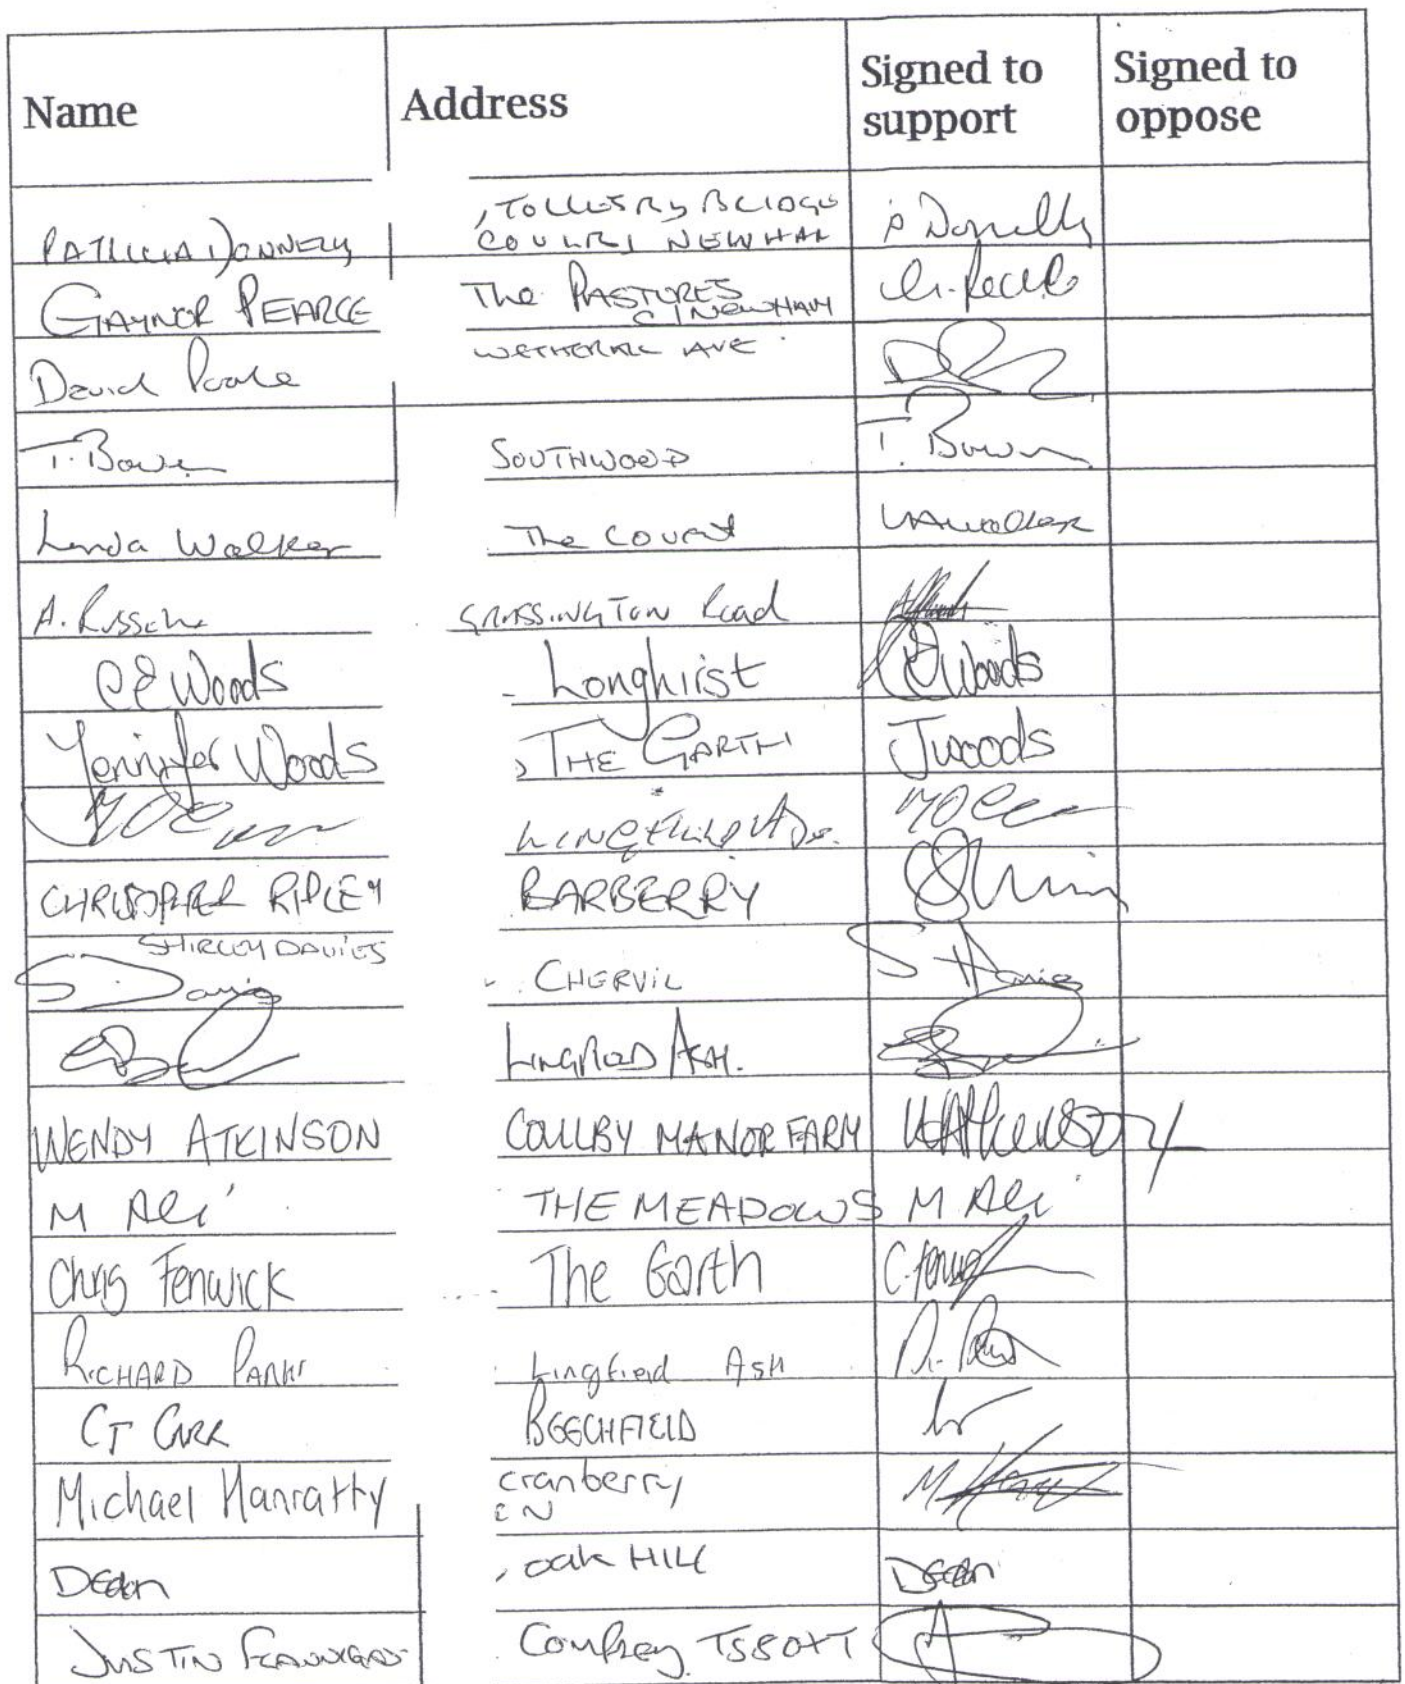 Name Address Signed to support Signed to oppose
, TOLLESBY BRIDGE
PATRICIA DONNELLY COULBY NEWHAM P Donnelly
GAYNOR PEARCE The PASTURES
C/NEWHAM
David Poole WETHERALL AVE
T. Bowen SOUTHWOOD T. Bowen
Linda Walker The Covert LAWalker
A. Russell GRASSINGTON Road
C E Woods Longhirst CEWoods
Jennifer Woods THE GARTH JWoods
LINGFIELD
CHRISTOPHER RIPLEY BARBERRY
SHIRLEY DAVIES
S. Davies CHERVIL S Davies
LINGFIELD ASH.
WENDY ATKINSON COULBY MANOR FARM WAtkinson
M Ali THE MEADOWS M Ali
Chris Fenwick The Garth C. Fenwick
RICHARD Lingfield ASH
CT CARR BEECHFIELD
Michael Hanratty cranberry M
CN
Dean , oak HILL Dean
JUSTIN FLANNIGAN Comfrey TS80XT